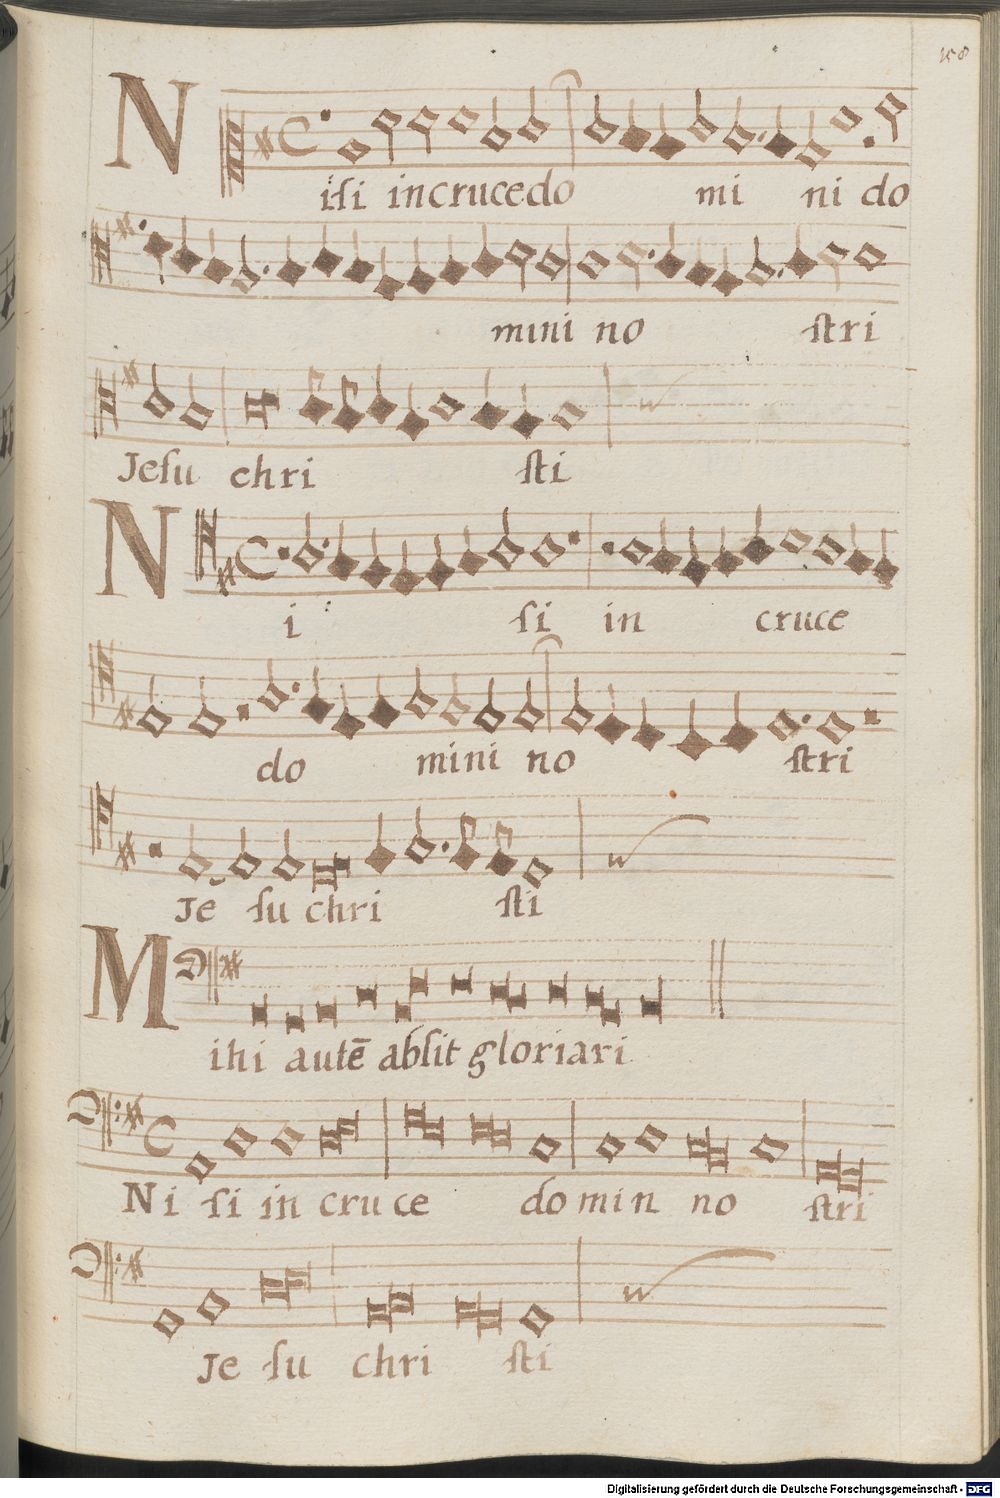 158
Nisi in cruce do mi ni do
mini no stri
Jesu chri sti
Ni si in cruce
do mini no stri
Je su chri sti
Mihi autē absit gloriari
Ni si in cru ce do min no stri
Je su chri sti
Digitalisierung gefördert durch die Deutsche Forschungsgemeinschaft - DFG